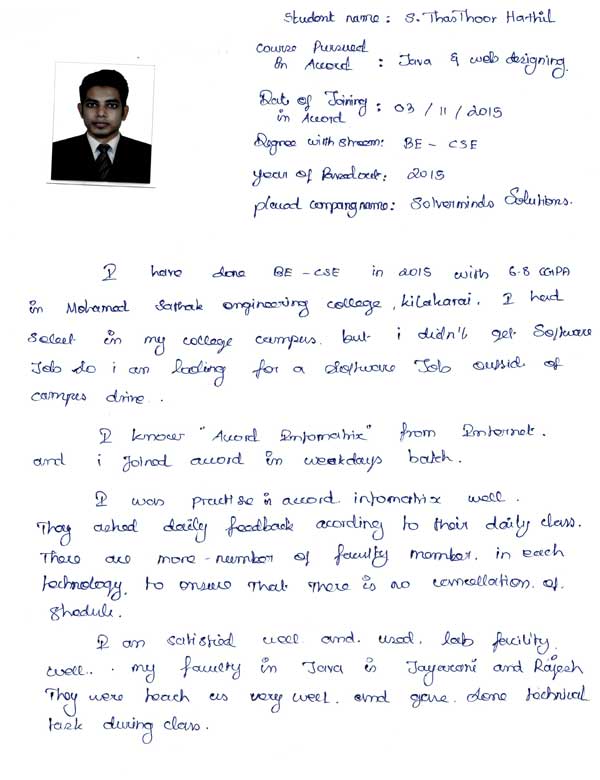 Student name : S. ThasThoor Harhil
Course Pursued
In Accord : Java & web designing.
Dat of Joining : 03 / 11 / 2015
in Accord
Degree with stream: BE - CSE
year of Breedout: 2015
placed company name: Solverminds Solutions.
I have done BE - CSE in 2015 with 6.8 CGPA
in Mohamed Sathak engineering college, Kilakarai. I had
select in my college campus. but i didn't get Software
Job so i am looding for a software Job outside of
campus drive.
I know "Accord Infomatrix" from Internet.
and i joined accord in weakdays batch.
I was practise in accord infomatrix well.
They asked daily feedback acording to their daily class.
There are more-number of faculty member. in each
technology, to ensure that there is no cancellation of
Shedule.
I am satisfied well and used. lab facility
well.. . my faculty in Java is Jayarani and Rajesh
They were teach us very well. and gave. done technical
task during class.